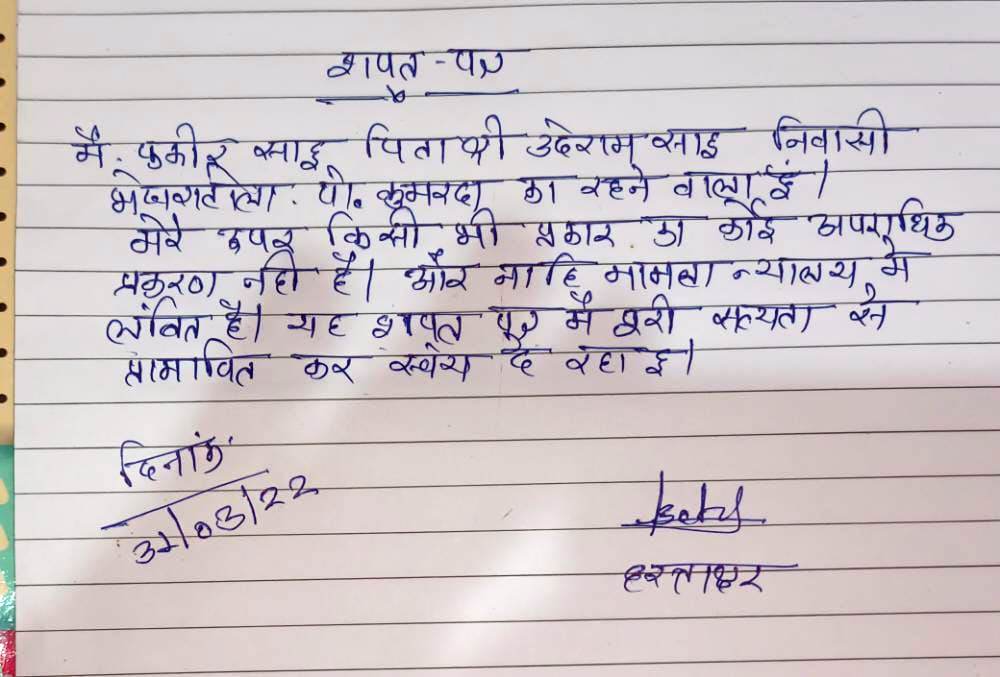 शपत - पत्र
मै. फकीर साहू पिता श्री उदेराम साहू निवासी
भोजराटोला. पो. कुमरदा का रहने वाला हूं।
मेरे उपर किसी भी प्रकार का कोई अपराधिक
प्रकरण नही है। और नाहि मामला न्यालय मे
लंवित है। यह शपत पत्र मै पूरी सत्यता से
प्रमावित कर स्वंय दे रहा हू।
दिनांक
/03/22
हस्ताक्षर